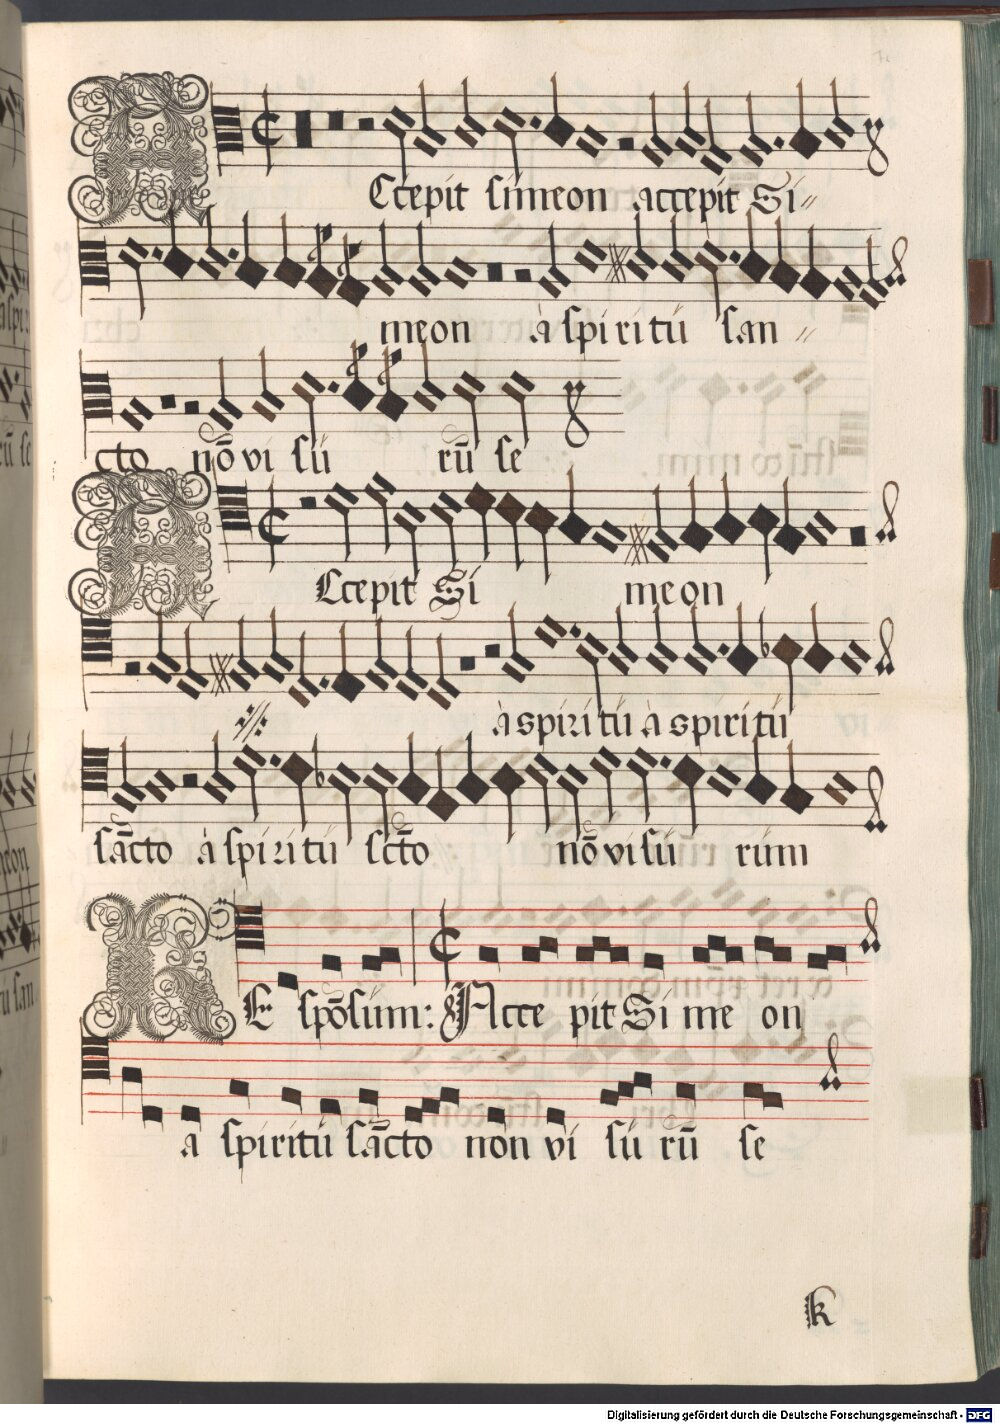 ACcepit simeon accepit Si
meon à spiritú san
cto nō vi sú rū se
ACcepit Si meon
à spiritú à spiritú
sācto à spiritú scto nō vi sú rúm
RE spōsúm: Acce pit Si me on
a spiritú sācto non vi sú rū se
k
Digitalisierung gefördert durch die Deutsche Forschungsgemeinschaft - DFG